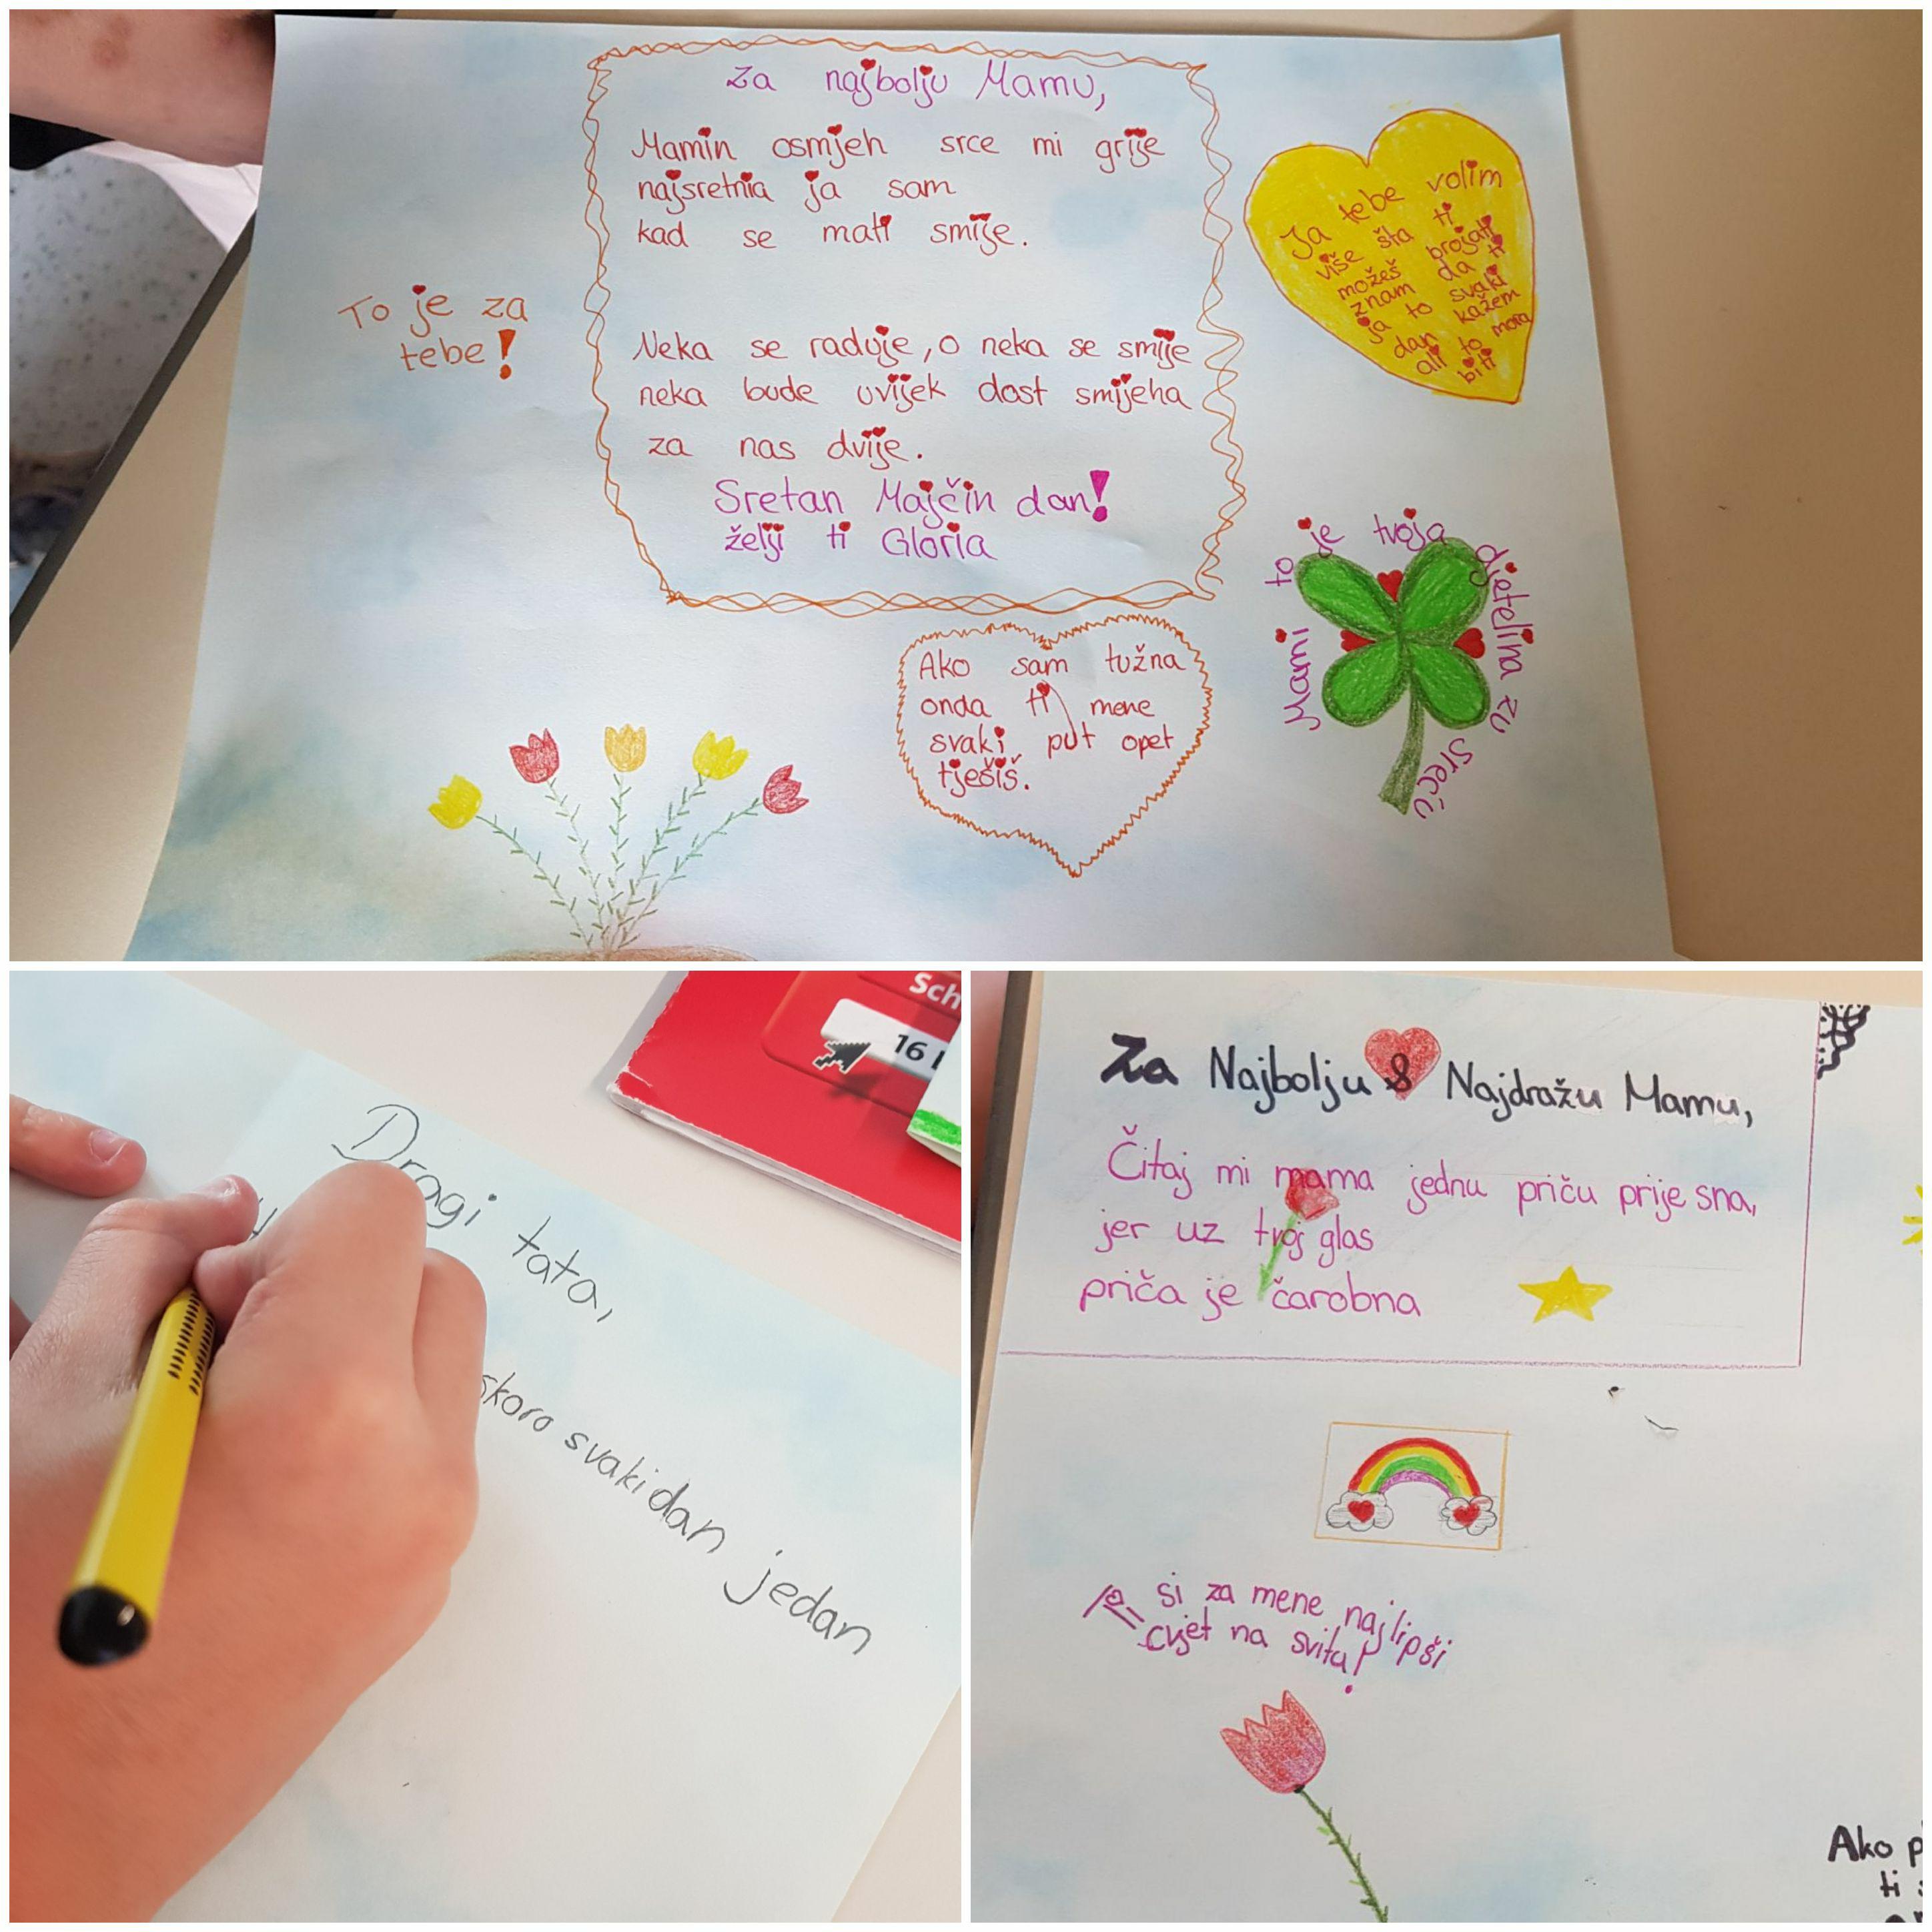 Za najbolju Mamu,
Mamin osmjeh srce mi grije
najsretnia ja sam
kad se mati smije.
Neka se raduje, o neka se smije
neka bude uvijek dost smijeha
za nas dvije.
Sretan Majčin dan!
želji ti Gloria
To je za
tebe!
Ja tebe volim
više šta ti
možeš brojati
znam da ti
ja to svaki
dan kažem
ali to mora
biti
Mami to je tvoja djetelina zu sreću
Ako sam tužna
onda ti mene
svaki put opet
tješiš.
Dragi tata,
skoro svaki dan jedan
Sch
16
Za Najbolju & Najdražu Mamu,
Čitaj mi mama jednu priču prije sna,
jer uz tvoj glas
priča je čarobna
Ti si za mene najlipši
cvjet na svitu!
Ako
ti